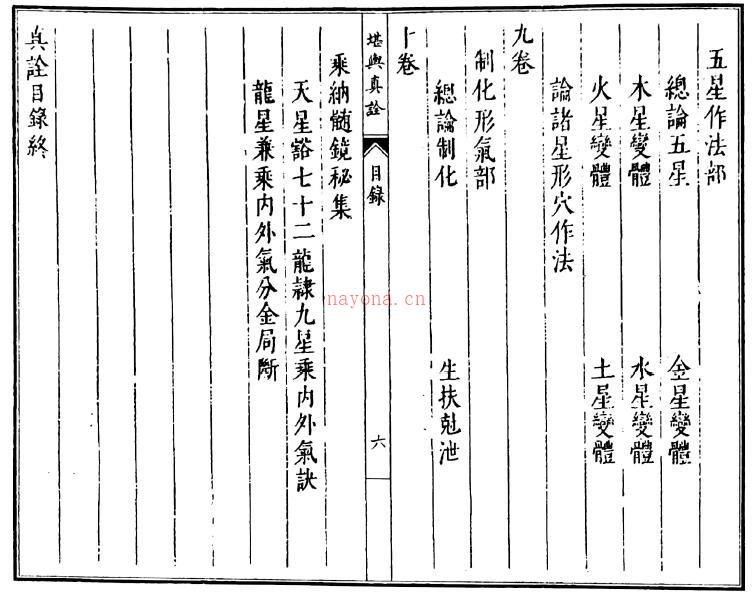 五星作法部
總論五星
金星變體
木星變體
水星變體
火星變體
土星變體
論諸星形穴作法
九卷
制化形氣部
總論制化
生扶尅泄
十卷
堪輿真詮
目錄
六
乘納髓鏡秘集
天星豁七十二龍隷九星乘內外氣訣
龍星兼乘內外氣分金局斷
真詮目錄終
nayona.cn